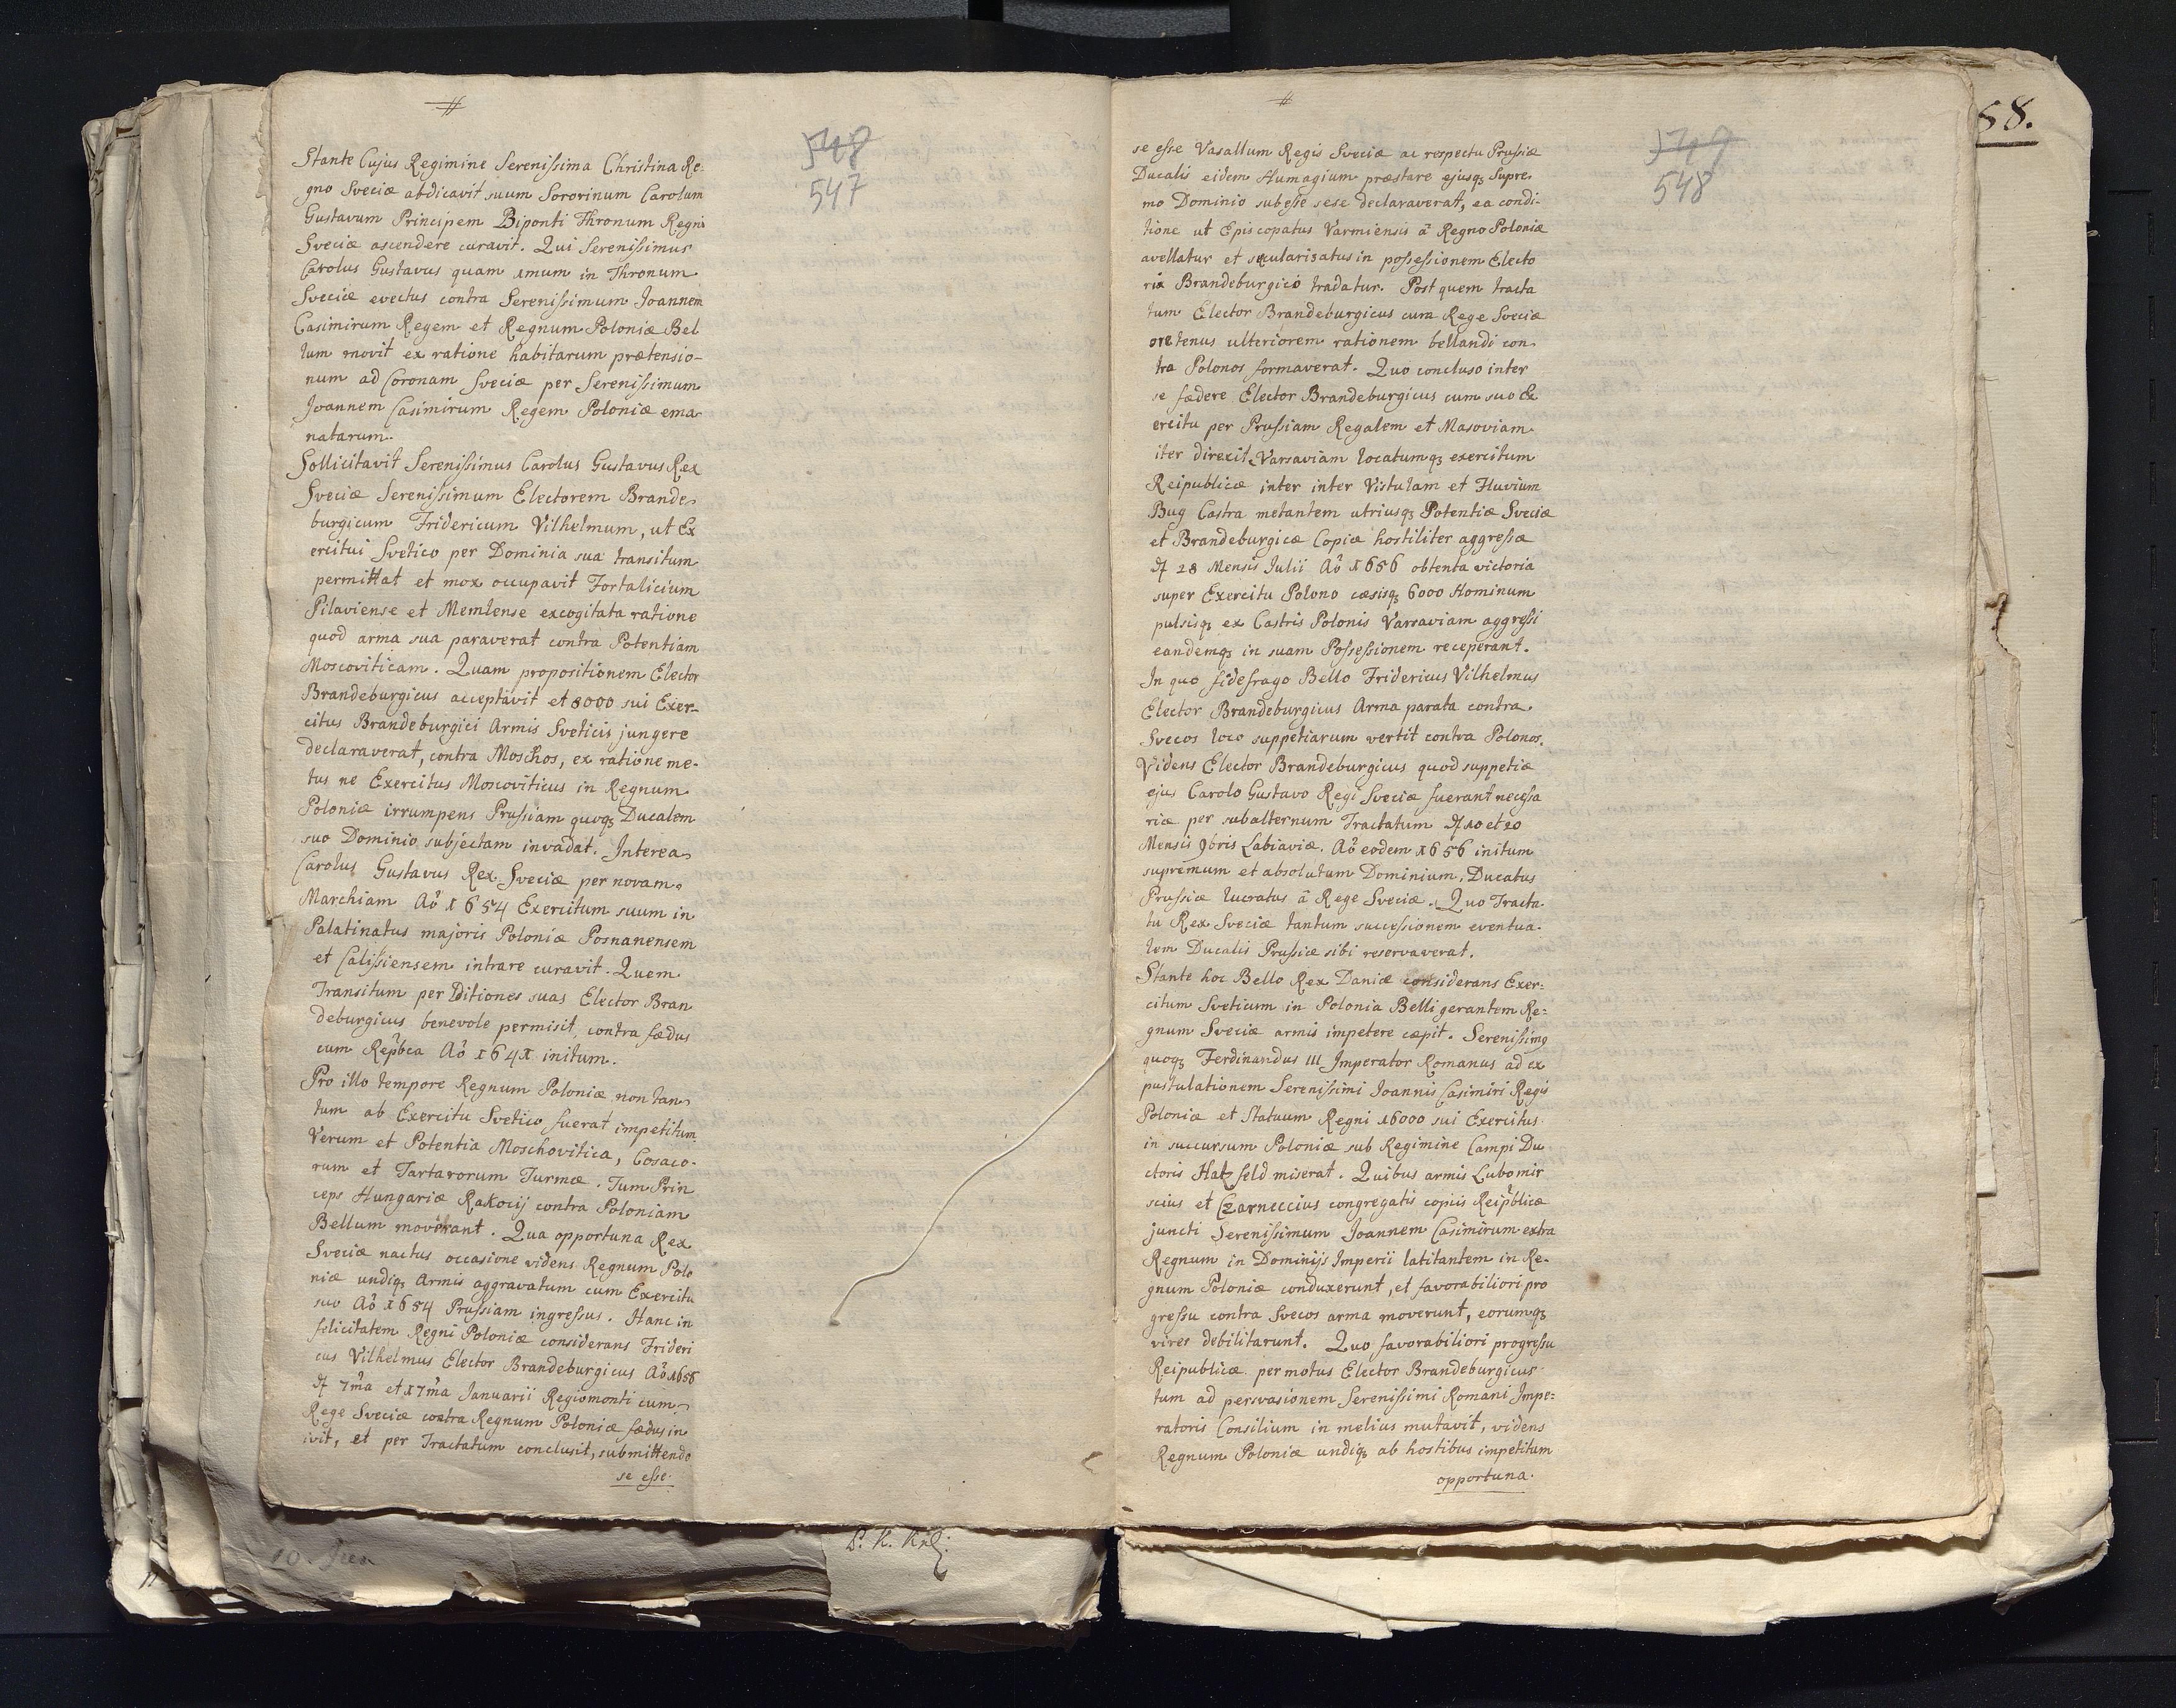 #
548
547
Stante Cujus Regimine Serenissima Christina Re:
gno Sveciæ abdicavit suum Sororinum Carolum
Gustavum Principem Biponti Thronum Regni
Sveciæ ascendere curavit. Qui Serenissimus
Carolus Gustavus quam 1mum in Thronum
Sveciæ evectus contra Serenissimum Joannem
Casimirum Regem et Regnum Poloniæ Bel
lum movit ex ratione habitarum prætensio-
num ad Coronam Sveciæ per Serenissimum
Joannem Casimirum Regem Poloniæ ema
natarum.
Sollicitavit Serenissimus Carolus Gustavus Rex
Sveciæ Serenissimum Electorem Brande
burgicum Fridericum Vilhelmum, ut Ex
ercitui Svetico per Dominia sua transitum
permittat et mox occupavit Fortalicium
Pilaviense et Memlense excogitata ratione
quod arma sua paraverat contra Potentiam
Moscoviticam. Quam propositionem Elector
Brandeburgicus acceptavit et 8000 sui Exer-
citus Brandeburgici Armis Sveticis jungere
declaraverat, contra Moschos, ex ratione me-
tus ne Exercitus Moscoviticus in Regnum
Poloniæ irrumpens Prussiam quoqȝ Ducalem
suo Dominio subjectam invadat. Interea
Carolus Gustavus Rex Sveciæ per novam
Marchiam Aõ 1654 Exercitum suum in
Palatinatus majoris Poloniæ Posnanensem
et Calissiensem intrare curavit. Quem
Transitum per Ditiones suas Elector Bran
deburgicus benevole permisit contra fædus
cum Repb̃ca Aõ 1641 initum.
Pro illo tempore Regnum Poloniæ non tan
tum ab Exercitu Svetico fuerat impetitum
Verum et Potentia Moschovitica, Cosaco-
rum et Tartarorum Turmæ. Tum Prin
ceps Hungariæ Rakocij contra Poloniam
Bellum moverant. Qua opportuna Rex
Sveciæ nactus occasione videns Regnum Polo
niæ undiqȝ Armis aggravatum cum Exercitu
suo Aõ 1654 Prussiam ingressus. Hanc in
felicitatem Regni Poloniæ considerans Frideri
cus Vilhelmus Elector Brandeburgicus Aõ 1656
d 7ma et 17ma Januarii Regiomonti cum
Rege Sveciæ contra Regnum Poloniæ fædus in
ivit, et per Tractatum conclusit, submittendo
se esse
#
549
548
58.
se esse Vasallum Regis Sveciæ ac respectu Prussiæ
Ducalis eidem Humagium præstare ejusqȝ Supre
mo Dominio subesse sese declaraverat, ea condi-
tione ut Episcopatus Varmiensis â Regno Poloniæ
avellatur et secularisatus in possessionem Electo
ris Brandeburgici tradatur. Post quem tracta
tum Elector Brandeburgicus cum Rege Sveciæ
oretenus ulteriorem rationem bellandi con
tra Polonos formaverat. Quo concluso inter
se fædere Elector Brandeburgicus cum suo Ex
ercitu per Prussiam Regalem et Masoviam
iter direxit Varsaviam locatumqȝ exercitum
Reipublicæ inter inter Vistulam et Fluvium
Bug Castra metantem utriusqȝ Potentiæ Sveciæ
et Brandeburgicæ Copiæ hostiliter aggressæ
d 28 Mensis Julii Aõ 1656 obtenta victoria
super Exercitu Polono cæsisqȝ 6000 Hominum
pulsisqȝ ex Castris Polonis Varsaviam aggressi
eandemqȝ in suam Possessionem receperant.
In quo fidefrago Bello Fridericus Vilhelmus
Elector Brandeburgicus Arma parata contra
Svecos loco suppetiarum vertit contra Polonos.
Videns Elector Brandeburgicus quod suppetiæ
ejus Carolo Gustavo Regi Sveciæ fuerant necessa
riæ per subalternum Tractatum d 10 et 20
Mensis 9bris Labiaviæ. Aõ eodem 1656 initum
supremum et absolutum Dominium, Ducatus
Prussiæ lucratus â Rege Sveciæ. Quo Tracta-
tu Rex Sveciæ tantum successionem eventua-
lem Ducalis Prussiæ sibi reservaverat.
Stante hoc Bello Rex Daniæ considerans Exer:
citum Sveticum in Polonia Belligerantem Re=
gnum Sveciæ armis impetere cæpit. Serenissimg
quoqȝ Ferdinandus III Imperator Romanus ad ex
pustulationem Serenissimi Joannis Casimiri Regis
Poloniæ et Statuum Regni 16000 sui Exercitus
in succursum Poloniæ sub Regimine Campi Du
ctoris Hatzfeld miserat. Quibus armis Lubomir
scius et Czarneccius congregatis copiis Reip̃blicæ
juncti Serenissimum Joannem Casimirum extra
Regnum in Dominijs Imperii latitantem in Re-
gnum Poloniæ conduxerunt, et favorabiliori pro
gressu contra Svecos arma moverunt, eorumqȝ
vires debilitarunt. Quo favorabiliori progressu
Reipublicæ permotus Elector Brandeburgicus
tum ad persvasionem Serenissimi Romani Impe=
ratoris Consilium in melius mutavit, videns
Regnum Poloniæ undiqȝ ab hostibus impetitum
opportuna